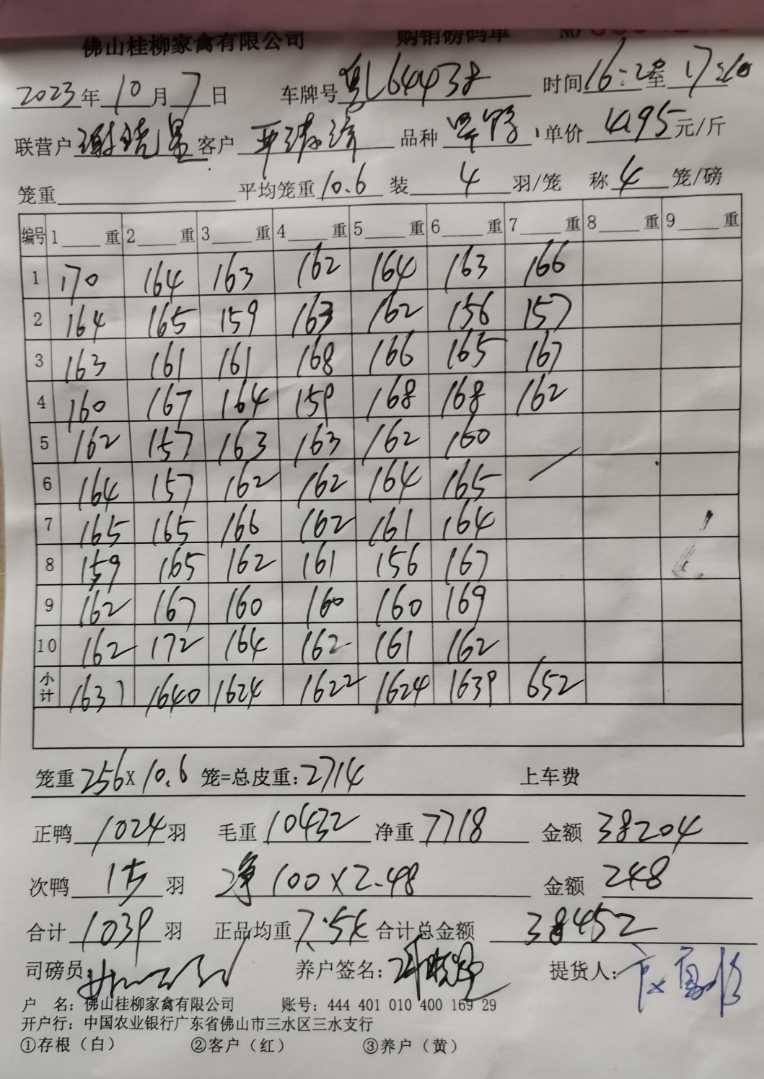 佛山桂柳家禽有限公司 购销磅码单 №
2023年10月7日 车牌号粤L64438 时间16:2至17:20
联营户 客户 品种 单价4.95元/斤
笼重 平均笼重10.6 装4羽/笼 称4笼/磅
编号 1 重 2 重 3 重 4 重 5 重 6 重 7 重 8 重 9 重
1 170 164 163 162 164 163 166
2 164 165 159 163 162 156 157
3 163 161 161 168 166 165 167
4 160 167 164 159 168 168 162
5 162 157 163 163 162 160
6 164 157 162 162 164 165
7 165 165 166 162 161 164
8 159 165 162 161 156 167
9 162 167 160 160 160 169
10 162 172 164 162 161 162
小计 1631 1640 1624 1622 1624 1639 652
笼重256×10.6笼=总皮重:2714 上车费
正鸭1024羽 毛重10432 净重7718 金额38204
次鸭15羽 净100×2.48 金额248
合计1039羽 正品均重7.54 合计总金额38452
司磅员 养户签名: 提货人:
户 名:佛山桂柳家禽有限公司 账号:444 401 010 400 169 29
开户行:中国农业银行广东省佛山市三水区三水支行
①存根（白） ②客户（红） ③养户（黄）